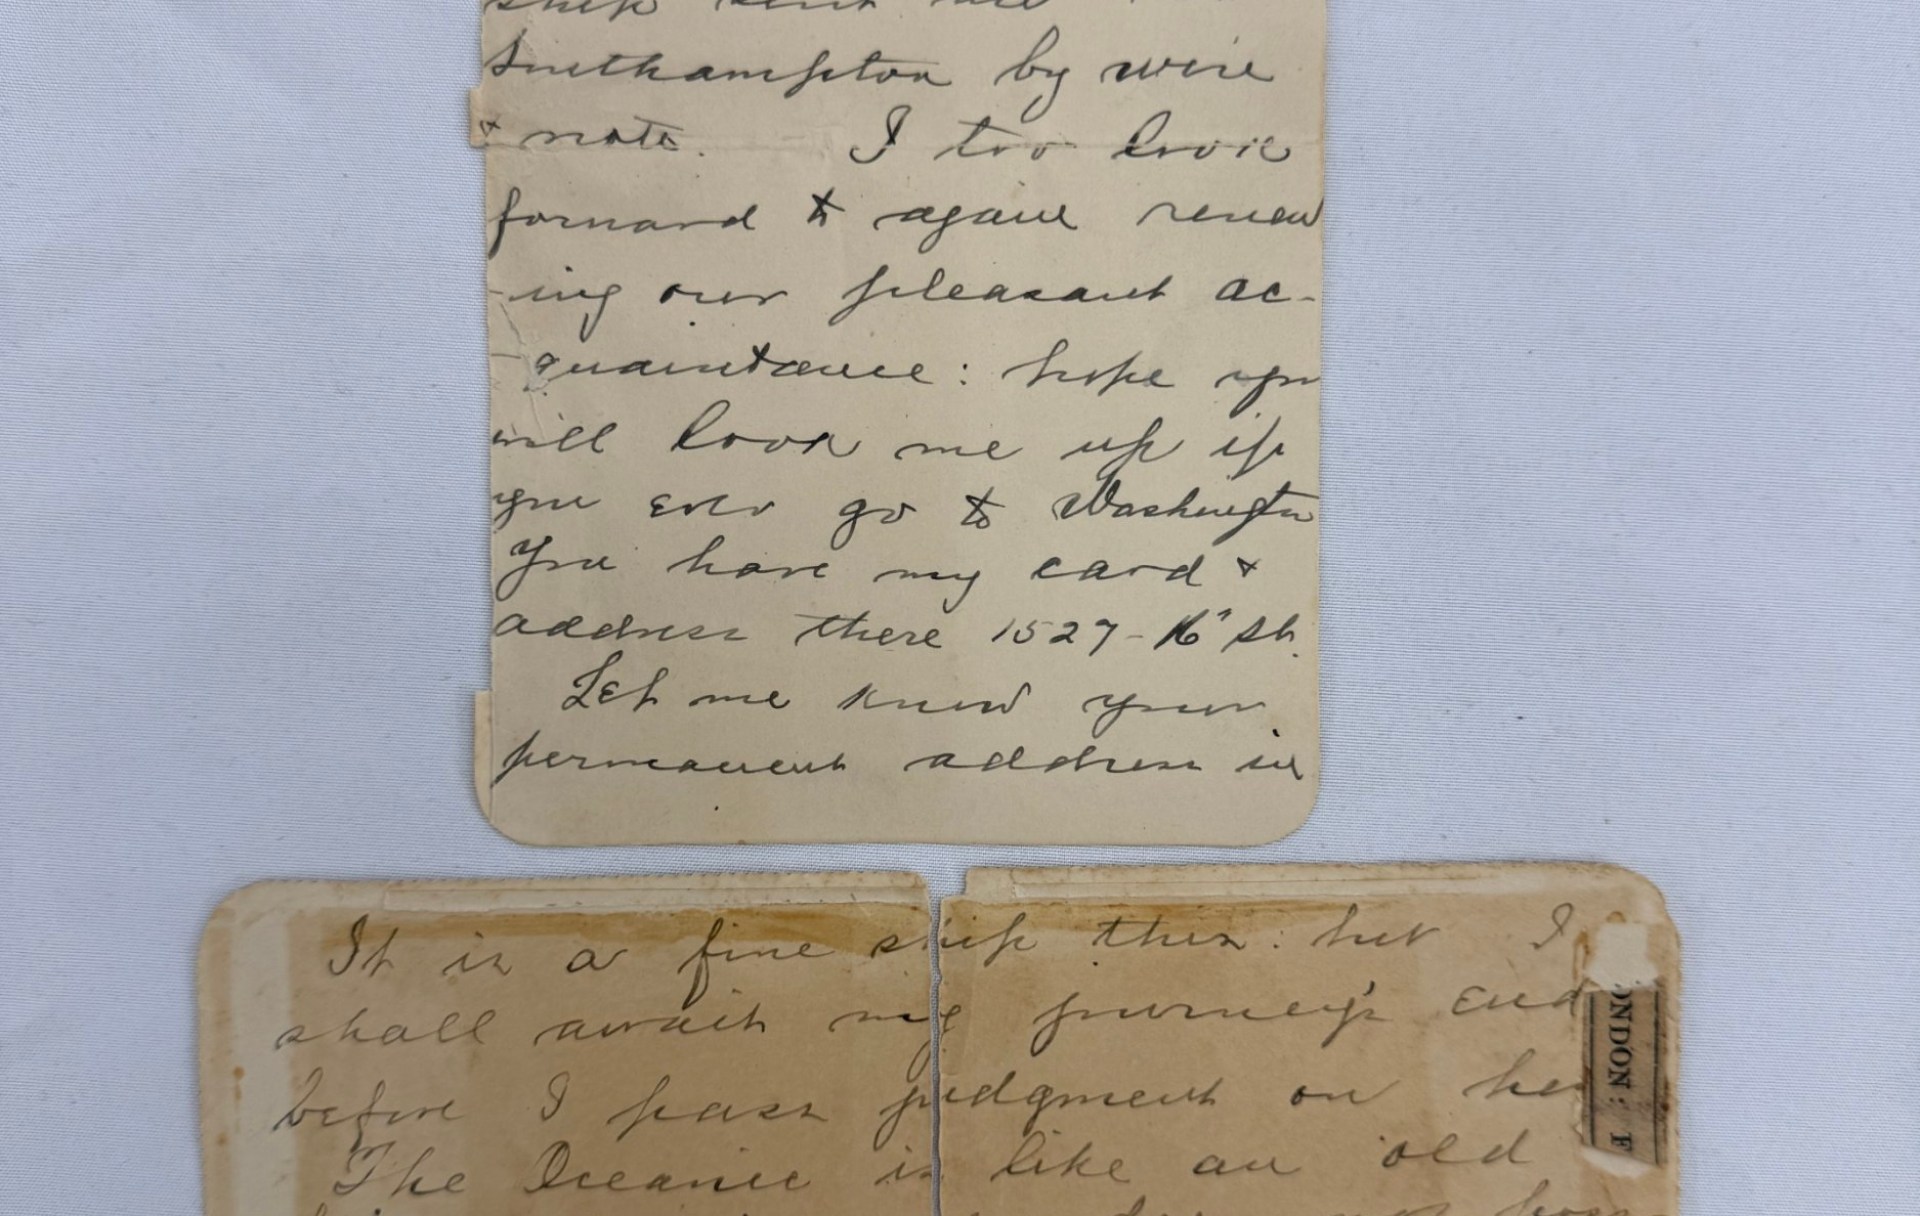 ship sent me
Southampton by wire
& note. I too look
forward to again renew
-ing our pleasant ac-
-quaintance: hope you
will look me up if
you ever go to Washington
You have my card &
address there 1527-16" St.
Let me know your
permanent address in
It is a fine ship this: but I
shall await my journey's end
before I pass judgment on her
The Oceanic is like an old
ONDON: F